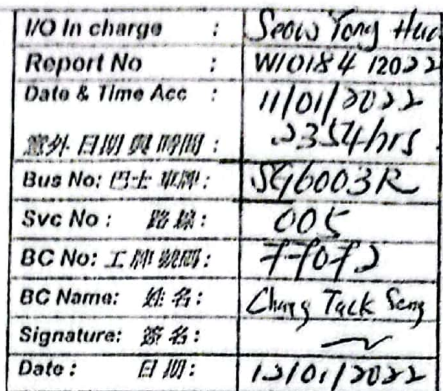 I/O In charge : Seow Tong Hua
Report No : W10184 12022
Date & Time Acc : 11/01/2022
意外 日期 與 時間 : 2354hrs
Bus No: 巴士 車牌 : SG6003R
Svc No : 路 線 : 005
BC No: 工 牌 號碼 :
BC Name: 姓 名 : Chang Tack Seng
Signature: 簽 名 :
Date : 日 期 : 12/01/2022